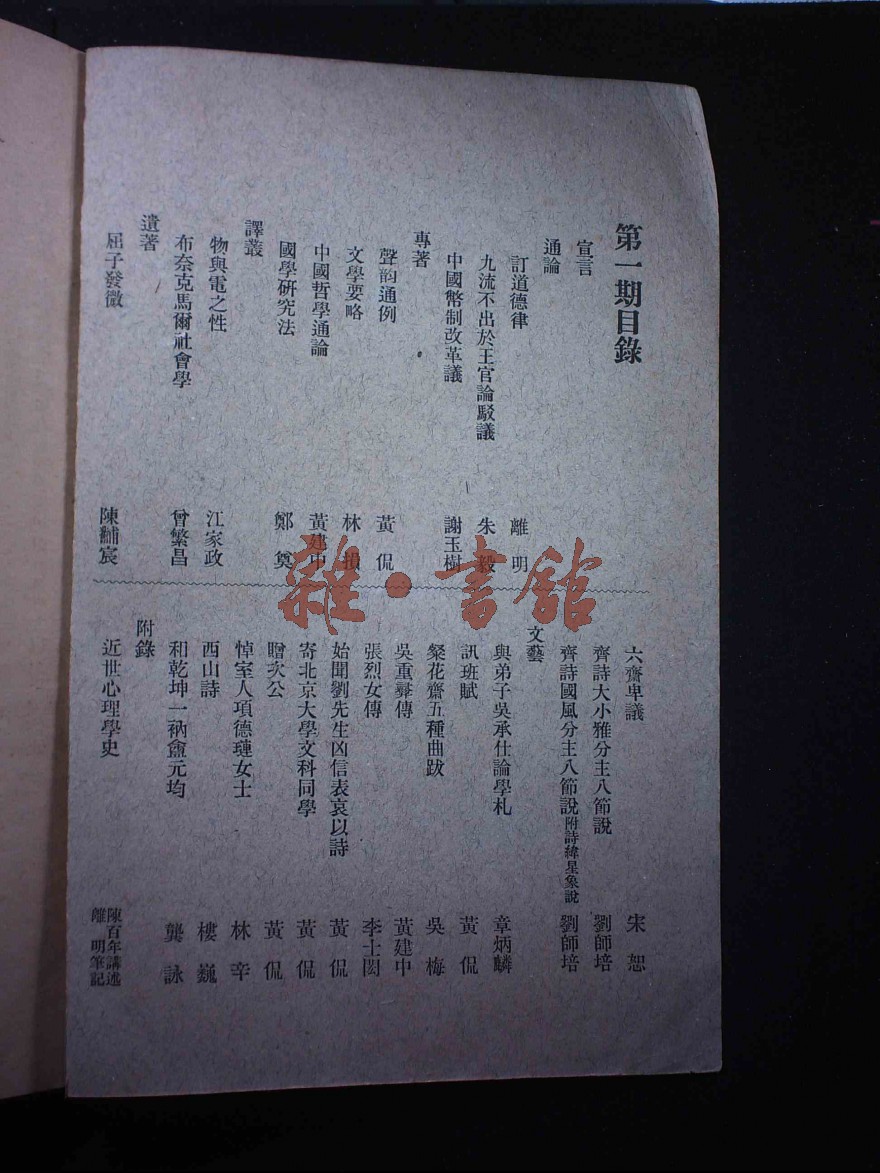 第一期目錄
宣言
通論
訂道德律 離明
九流不出於王官論駁議 朱毅
中國幣制改革議 謝玉樹
專著
聲韵通例 黃侃
文學要略 林損
中國哲學通論 黃建中
國學研究法 鄭奠
譯叢
物與電之性 江家政
布奈克馬爾社會學 曾繁昌
遺著
屈子發微 陳黼宸
六齋卑議 宋恕
齊詩大小雅分主八節說 劉師培
齊詩國風分主八節說附詩緯星象說 劉師培
文藝
與弟子吳承仕論學札 章炳麟
訊班賦 黃侃
粲花齋五種曲跋 吳梅
吳重羣傳 黃建中
張烈女傳 李士閎
始聞劉先生凶信表哀以詩 黃侃
寄北京大學文科同學 黃侃
贈次公 黃侃
悼室人項德璉女士 林辛
西山詩 樓巍
和乾坤一衲盦元均 龔詠
附錄
近世心理學史 陳百年講述
離明筆記
雜·書館